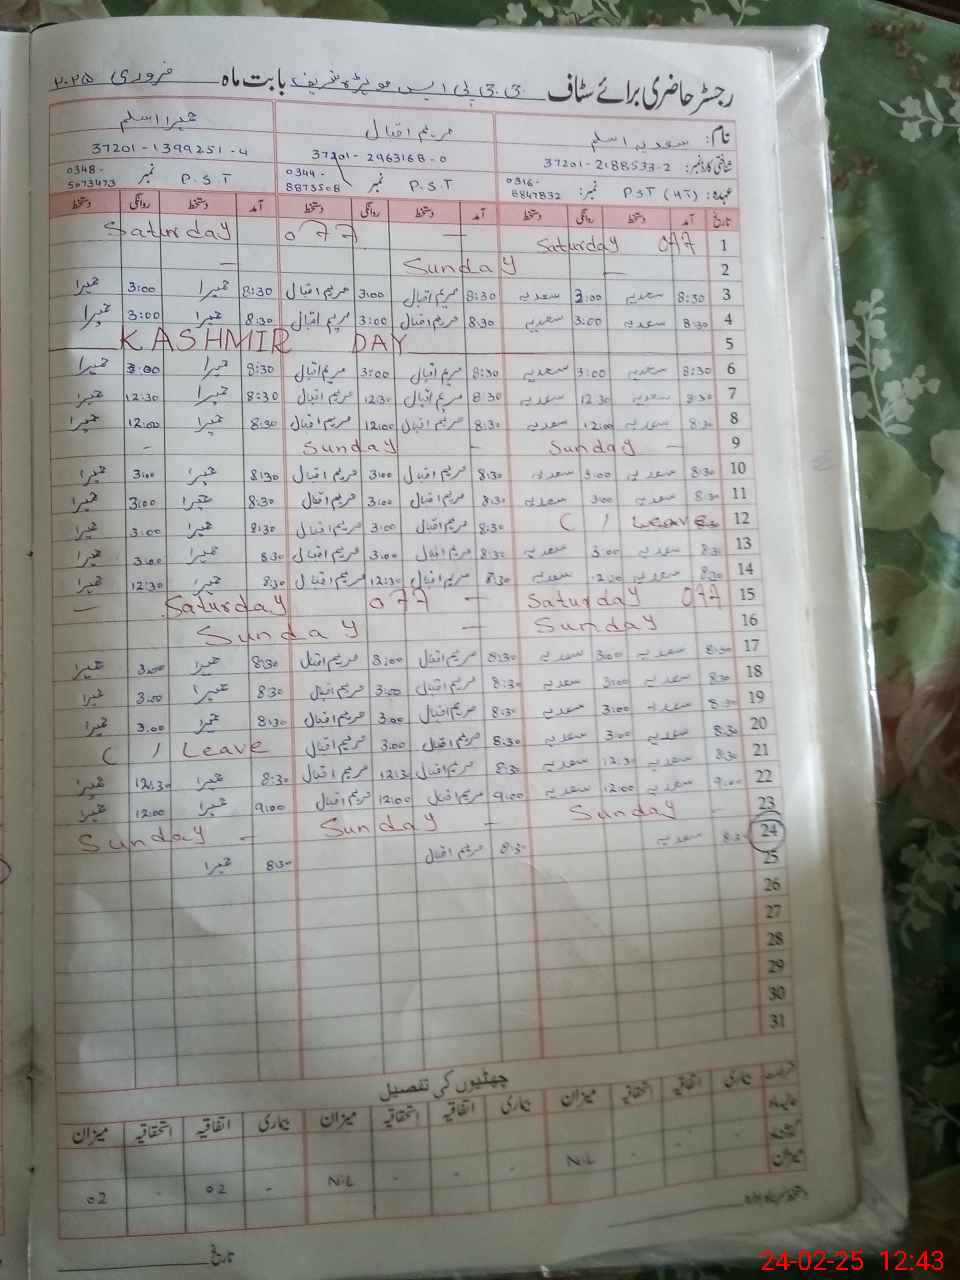 رجسٹر حاضری برائے سٹاف بابت ماہ فروری ۲۰۲۵
نام: سعدیہ اسلم مریم اقبال حمیرا اسلم
شناختی کارڈ نمبر: 37201-2188533-2 37201-2963168-0 37201-1399251-4
عہدہ: PST (HT) نمبر: 0316-8847832 P.S.T نمبر 0344-8873508 P.S.T نمبر 0348-5073473
تاریخ آمد دستخط روانگی دستخط آمد دستخط روانگی دستخط آمد دستخط روانگی دستخط
1 Saturday off — Saturday off
2 — Sunday —
3 8:30 سعدیہ 3:00 سعدیہ 8:30 مریم اقبال 3:00 مریم اقبال 8:30 حمیرا 3:00 حمیرا
4 8:30 سعدیہ 3:00 سعدیہ 8:30 مریم اقبال 3:00 مریم اقبال 8:30 حمیرا 3:00 حمیرا
5 KASHMIR DAY
6 8:30 سعدیہ 3:00 سعدیہ 8:30 مریم اقبال 3:00 مریم اقبال 8:30 حمیرا 3:00 حمیرا
7 8:30 سعدیہ 12:30 سعدیہ 8:30 مریم اقبال 12:30 مریم اقبال 8:30 حمیرا 12:30 حمیرا
8 8:30 سعدیہ 12:00 سعدیہ 8:30 مریم اقبال 12:00 مریم اقبال 8:30 حمیرا 12:00 حمیرا
9 — Sunday - Sunday -
10 8:30 سعدیہ 3:00 سعدیہ 8:30 مریم اقبال 3:00 مریم اقبال 8:30 حمیرا 3:00 حمیرا
11 8:30 سعدیہ 3:00 سعدیہ 8:30 مریم اقبال 3:00 مریم اقبال 8:30 حمیرا 3:00 حمیرا
12 ( 1 Leave 8:30 مریم اقبال 3:00 مریم اقبال 8:30 حمیرا 3:00 حمیرا
13 8:30 سعدیہ 3:00 سعدیہ 8:30 مریم اقبال 3:00 مریم اقبال 8:30 حمیرا 3:00 حمیرا
14 8:30 سعدیہ 12:30 سعدیہ 8:30 مریم اقبال 12:30 مریم اقبال 8:30 حمیرا 12:30 حمیرا
15 Saturday off — Saturday off —
16 Sunday — Sunday
17 8:30 سعدیہ 3:00 سعدیہ 8:30 مریم اقبال 3:00 مریم اقبال 8:30 حمیرا 3:00 حمیرا
18 8:30 سعدیہ 3:00 سعدیہ 8:30 مریم اقبال 3:00 مریم اقبال 8:30 حمیرا 3:00 حمیرا
19 8:30 سعدیہ 3:00 سعدیہ 8:30 مریم اقبال 3:00 مریم اقبال 8:30 حمیرا 3:00 حمیرا
20 8:30 سعدیہ 3:00 سعدیہ 8:30 مریم اقبال 3:00 مریم اقبال ( 1 Leave
21 8:30 سعدیہ 12:30 سعدیہ 8:30 مریم اقبال 12:30 مریم اقبال 8:30 حمیرا 12:30 حمیرا
22 9:00 سعدیہ 12:00 سعدیہ 9:00 مریم اقبال 12:00 مریم اقبال 9:00 حمیرا 12:00 حمیرا
23 - Sunday - Sunday - Sunday
24 8:30 سعدیہ 8:30 مریم اقبال 8:30 حمیرا
25
26
27
28
29
30
31
چھٹیوں کی تفصیل
بیماری اتفاقیہ استحقاقیہ میزان بیماری اتفاقیہ استحقاقیہ میزان بیماری اتفاقیہ استحقاقیہ میزان
میزان - - NIL - - - NIL - 02 - 02
تاریخ
24-02-25 12:43